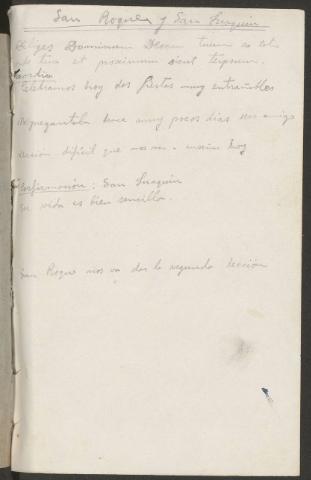 San Roque y San Juaquin
Diliges Dominum Deum tuum ex toto
corde tuo et proximum sicut te ipsum.
Exordio
Celebramos hoy dos fiestas muy entrañables
Me preguntaba hace muy pocos dias un amigo
lección difícil que nos va a enseñar hoy
Confirmación: San Juaquin
Su vida es bien sencilla.
San Roque nos va dar la segunda lección